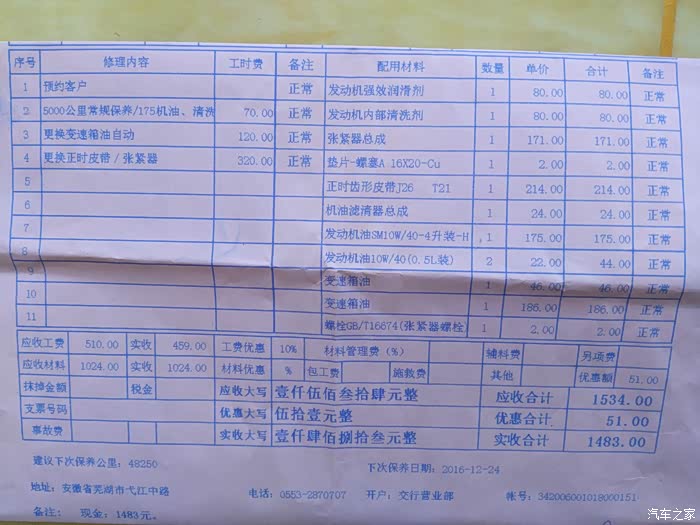 序号 修理内容 工时费 备注 配用材料 数量 单价 合计 备注
1 预约客户 正常 发动机强效润滑剂 1 80.00 80.00 正常
2 5000公里常规保养/175机油、清洗 70.00 正常 发动机内部清洗剂 1 80.00 80.00 正常
3 更换变速箱油自动 120.00 正常 张紧器总成 1 171.00 171.00 正常
4 更换正时皮带/张紧器 320.00 正常 垫片-螺塞A 16X20-Cu 1 2.00 2.00 正常
5 正时齿形皮带J26 T21 1 214.00 214.00 正常
6 机油滤清器总成 1 24.00 24.00 正常
7 发动机油SM10W/40-4升装-H 1 175.00 175.00 正常
8 发动机油10W/40(0.5L装) 2 22.00 44.00 正常
9 变速箱油 1 46.00 46.00 正常
10 变速箱油 1 186.00 186.00 正常
11 螺栓GB/T16674(张紧器螺栓 1 2.00 2.00 正常
应收工费 510.00 实收 459.00 工费优惠 10% 材料管理费(%) 辅料费 另项费
应收材料 1024.00 实收 1024.00 材料优惠 % 包工费 施救费 其他 优惠额 51.00
抹掉金额 税金 应收大写 壹仟伍佰叁拾肆元整 应收合计 1534.00
支票号码 优惠大写 伍拾壹元整 优惠合计 51.00
事故费 实收大写 壹仟肆佰捌拾叁元整 实收合计 1483.00
建议下次保养公里：48250 下次保养日期：2016-12-24
地址：安徽省芜湖市弋江中路 电话：0553-2870707 开户：交行营业部 帐号：342006001018000151
备注： 现金：1483元。
汽车之家